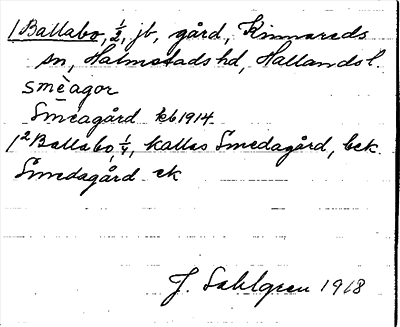 1 Ballabo, 1/2, jb, gård, Kinnareds
sn, Halmstads hd, Hallands l.
smèagor
Smeagård kb 1914
1² Ballabo, 1/4, kallas Smedagård, bek.
Smedagård ek
J. Sahlgren 1918